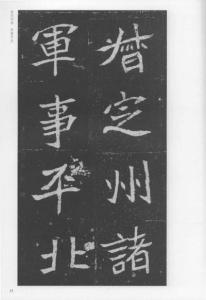 督定州諸
軍事平北